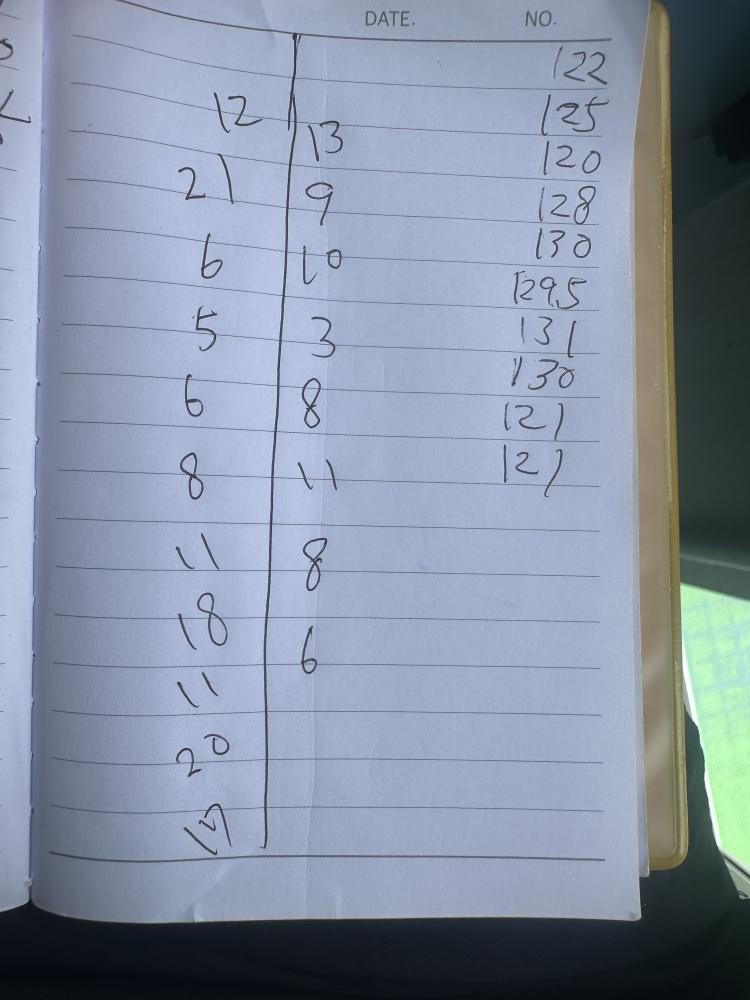 DATE. NO.
122
12 125
13
21 120
9 128
6 10 130
129.5
5 3 131
6 8 130
121
8 11 121
11 8
18 6
11
20